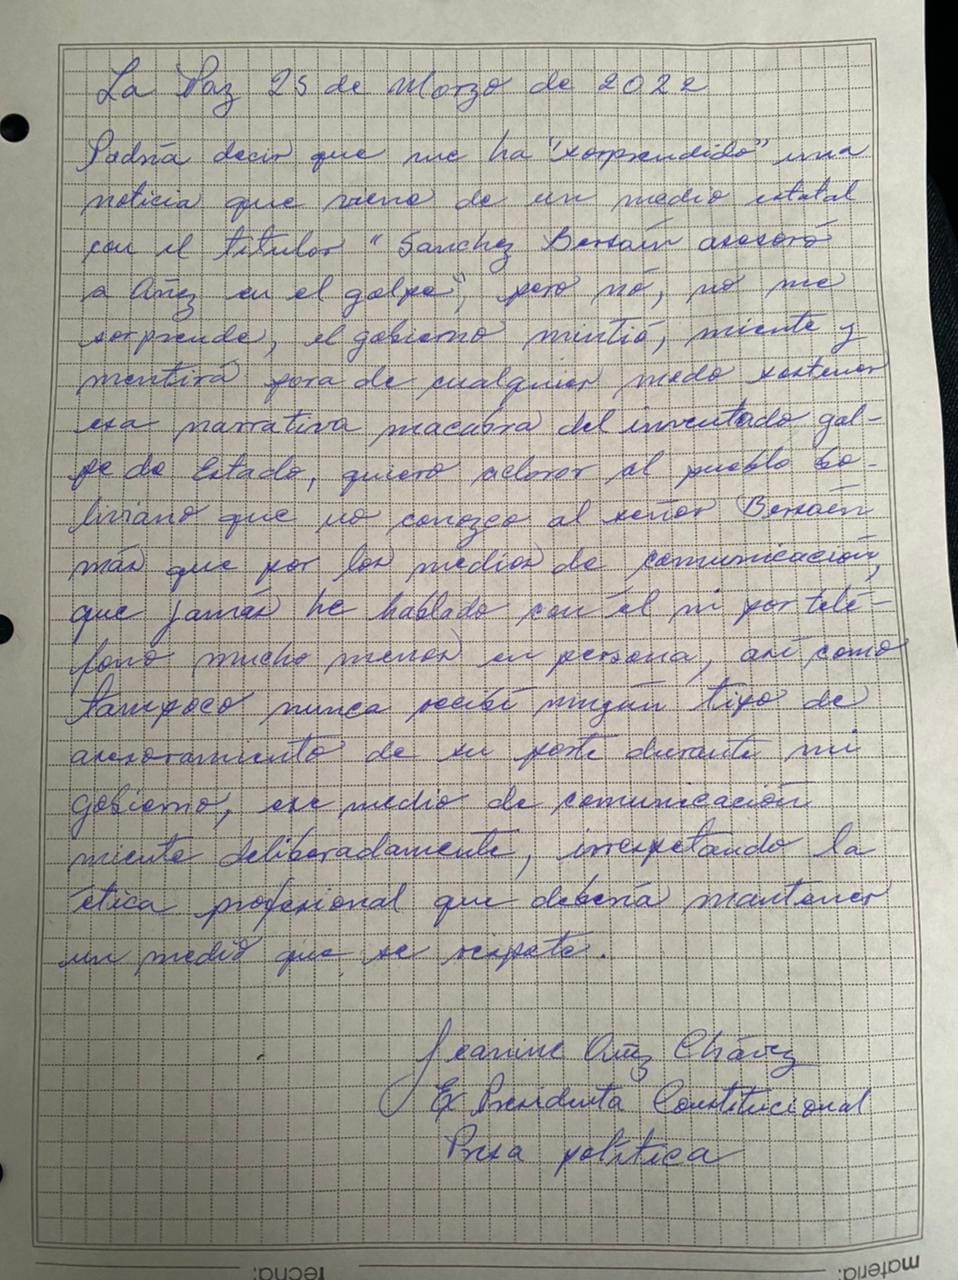 La Paz 25 de Marzo de 2022
Podría decir que me ha "sorprendido" una
noticia que viene de un medio estatal
con el titular "Sanchez Berzaín asesoró
a Añez en el golpe", pero nó, no me
sorprende, el gobierno mintió, miente y
mentirá para de cualquier modo sostener
esa narrativa macabra del inventado gol-
pe de Estado, quiero aclarar al pueblo bo-
liviano que no conozco al señor Berzaín
más que por los medios de comunicación,
que jamás he hablado con él ni por telé-
fono mucho menos en persona, así como
tampoco nunca recibí ningún tipo de
asesoramiento de su parte durante mi
gobierno, ese medio de comunicación
miente deliberadamente, irrespetando la
ética profesional que debería mantener
un medio que se respete.
Jeanine Añez Chávez
Ex Presidenta Constitucional
Presa política
materia:
fecha: